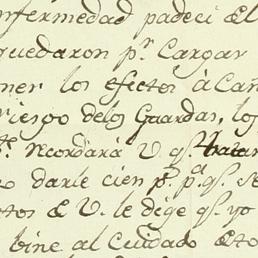 nfermedad padeci el
quedaron pr. Cargar
ner los efectos à Cañ
riesgo delos Guardas, los
recordarà V. qe.
darle cien ps. pa. qe. se
tos de V. le dige qe. yo
bine al Cuidado de to